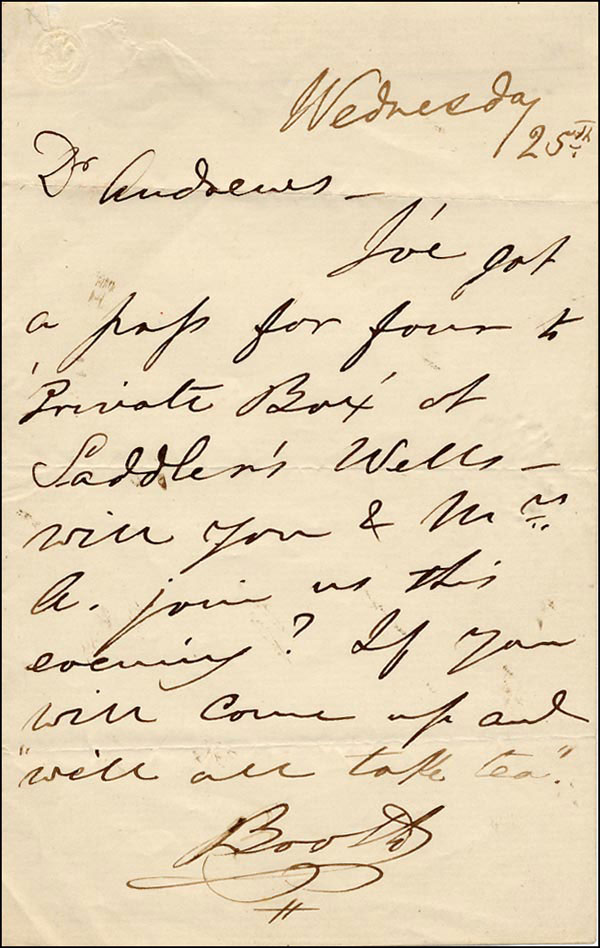 Wednesday
25th
Dr Andrews –
I've got
a pass for four to
'Private Box' at
Saddler's Wells –
will you & Mrs
A. join us this
evening? If you
will come up and
"we'll all take tea".
Booth